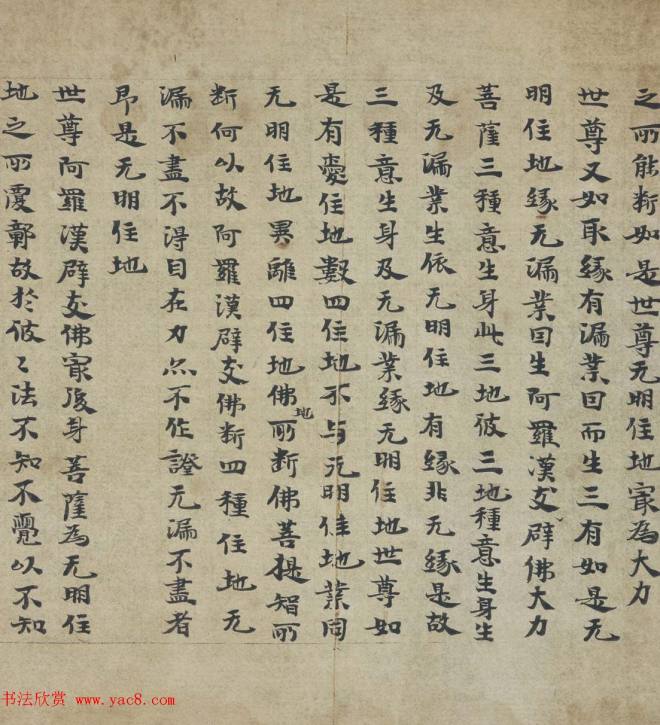 之所能斷如是世尊无明住地冣為大力
世尊又如取緣有漏業因而生三有如是无
明住地緣无漏業因生阿羅漢支辟佛大力
菩薩三種意生身此三地彼三地種意生身生
及无漏業生依无明住地有緣非无緣是故
三種意生身及无漏業緣无明住地世尊如
是有愛住地數四住地不与无明住地業同
无明住地異離四住地佛地所斷佛菩提智所
斷何以故阿羅漢辟支佛斷四種住地无
漏不盡不得自在力亦不作證无漏不盡者
即是无明住地
世尊阿羅漢辟支佛冣後身菩薩為无明住
地之所覆鄣故於彼〻法不知不覺以不知
书法欣赏 www.yac8.com